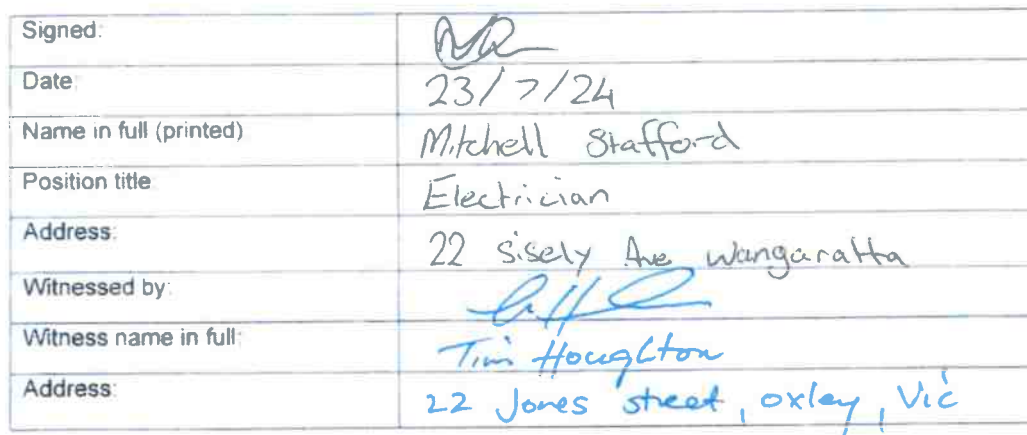 Signed:
Date: 23/7/24
Name in full (printed) Mitchell Stafford
Position title Electrician
Address: 22 Sisely Ave Wangaratta
Witnessed by:
Witness name in full: Tim Houghton
Address: 22 Jones street, oxley, Vic